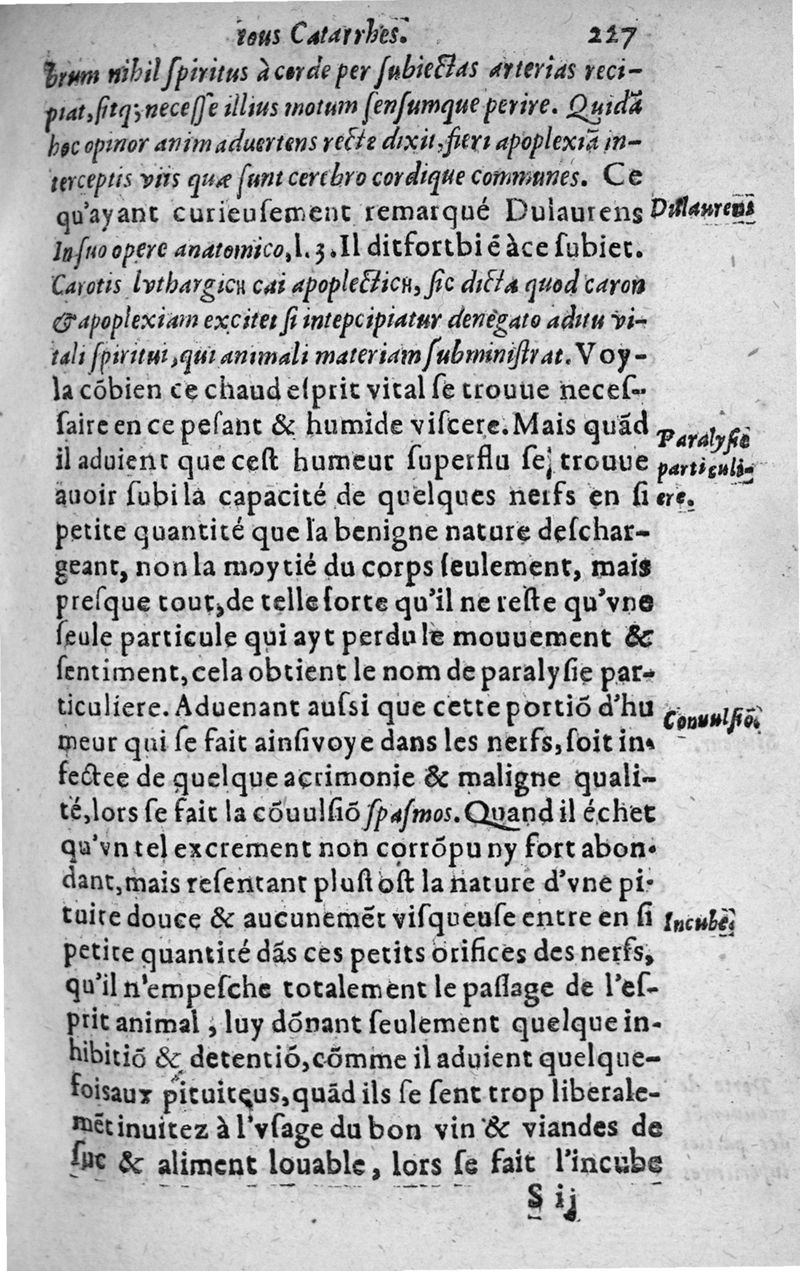 tous Catarrhes. 227
brum nihil ſpiritus à corde per ſubiectas arterias reci-
piat, ſitq; neceſſe illius motum ſenſumque perire. Quidã
hoc opinor animaduertens recte dixit, fieri apoplexiã in-
terceptis viis quæ ſunt cerebro cordique communes. Ce
qu'ayant curieuſement remarqué Dulaurens Dulaurens
In ſuo opere anatomico, l. 3. Il dit fort biẽ à ce ſubiet.
Carotis lythargicη cai apoplecticη, ſic dicta quod caron
& apoplexiam excitet ſi intepcipiatur denegato aditu vi-
tali ſpiritui, qui animali materiam ſubminiſtrat. Voy-
la cõbien ce chaud eſprit vital ſe trouue neceſ-
ſaire en ce peſant & humide viſcere. Mais quãd Paralyſie
il aduient que ceſt humeur ſuperflu ſe trouue particuli-
auoir ſubi la capacité de quelques nerfs en ſi ere.
petite quantité que la benigne nature deſchar-
geant, non la moytié du corps ſeulement, mais
preſque tout, de telle ſorte qu'il ne reſte qu'vne
ſeule particule qui ayt perdu le mouuement &
ſentiment, cela obtient le nom de paralyſie par-
ticuliere. Aduenant auſsi que cette portiõ d'hu Conuulſiõ.
meur qui ſe fait ainſi voye dans les nerfs, ſoit in-
fectee de quelque acrimonie & maligne quali-
té, lors ſe fait la cõuulſiõ ſpaſmos. Quand il échet
qu'vn tel excrement non corrõpu ny fort abon-
dant, mais reſentant pluſtoſt la nature d'vne pi-
tuite douce & aucunemẽt viſqueuſe entre en ſi Incube.
petite quantité dãs ces petits orifices des nerfs,
qu'il n'empeſche totalement le paſſage de l'eſ-
prit animal, luy dõnant ſeulement quelque in-
hibitiõ & detentiõ, cõmme il aduient quelque-
fois aux pituiteus, quãd ils ſe ſent trop liberale-
mẽt inuitez à l'vſage du bon vin & viandes de
ſuc & aliment louable, lors ſe fait l'incube
S ij